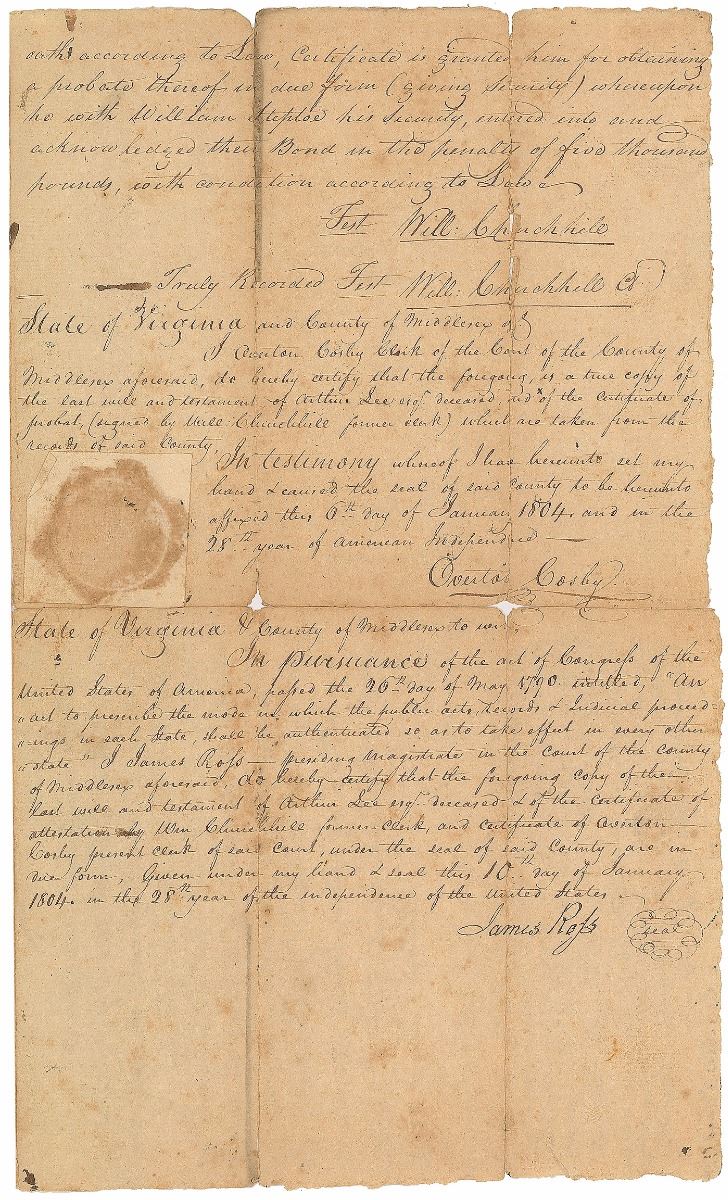 oath according to Law, Certificate is granted him for obtaining
a probate thereof in due form (giving Security) whereupon
he with William Steptoe his Security, entered into and
acknowledged their Bond in the penalty of five thousand
pounds, with condition according to Law
Test Will: Churchhill
Truly Recorded Test Will: Churchhill Cl
State of Virginia and County of Middlesex
I Overton Cosby Clerk of the Cort of the County of
Middlesex aforesaid, do hereby certify that the foregoing, is a true copy of
the last will and testament of Arthur Lee esqr. deceased, and of the certificate of
probat, (signed by Will: Churchhill former clerk) which are taken from the
records of said County,
In testimony whereof I have hereunto set my
hand & caused the seal of said county to be hereunto
affixed this 6th day of January 1804. and in the
28th year of American Independence
Overton Cosby
State of Virginia & County of Middlesex to wit,
In pursuance of the act of Congress of the
United States of America, passed the 26th day of May 1790. intitled, "An
"act to prescribe the mode in, which the public acts, Records & Judicial proceed=
"ings in each State, shall be authenticated so as to take effect in every other
"state" I James Ross presiding magistrate in the court of the county
of Middlesex aforesaid, do hereby certify that the foregoing copy of the
last will and testament of Arthur Lee esqr. deceased & of the certificate of
attestation by Wm Churchhill former clerk, and certificate of Overton
Cosby present clerk of said court, under the seal of said County, are in
due form, Given under my hand & seal this 10th day of January
1804. in the 28th year of the independence of the United States
James Ross seal